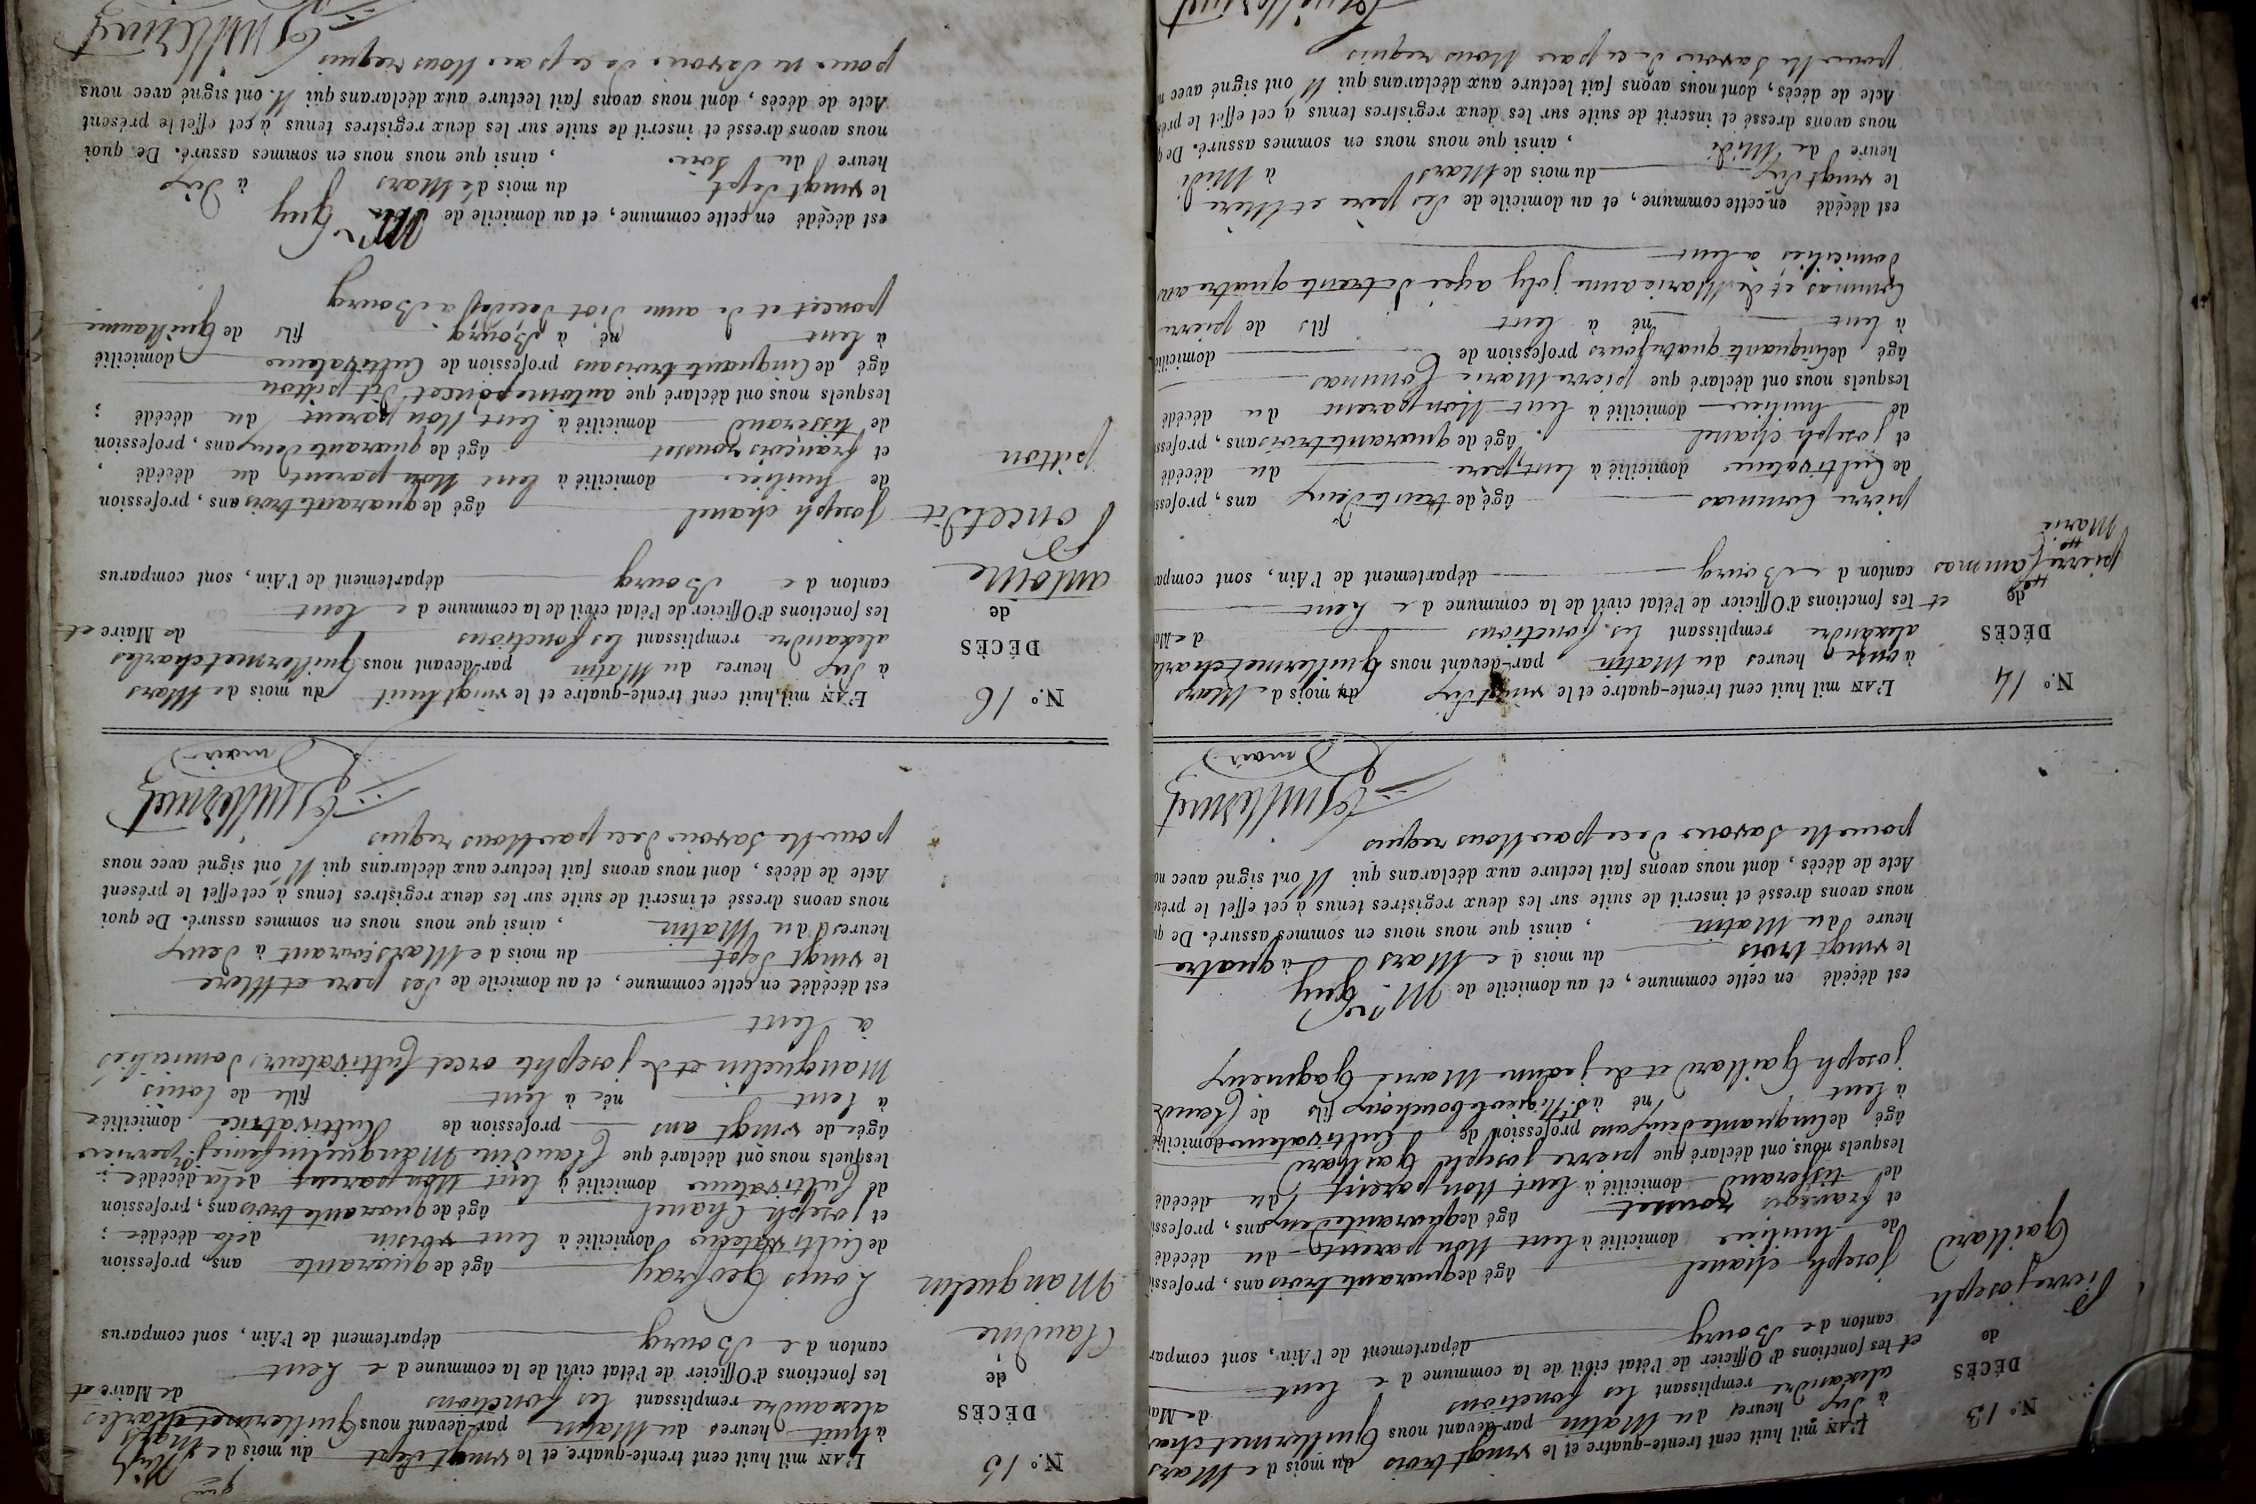 N.º 13
DÉCÈS
de
Pierre joseph
Gaillard
L'AN mil huit cent trente-quatre et le vingt trois du mois de Mars
à dix heures du Matin par-devant nous Guillermet char
alexandre remplissant les fonctions de Mai
et les fonctions d'Officier de l'état civil de la commune de lent
canton de Bourg département de l'Ain, sont compar
joseph chanel âgé de quarante trois ans, professi
de huilier domicilié à lent Non parent du décédé
et françois rousset âgé de quarante deux ans, professi
de tisserand domicilié à lent Non parent du décédé
lesquels nous ont déclaré que pierre joseph Gaillard
âgé de cinquante deux ans profession de Cultivateur domicilié
à lent né à fils de Claude
joseph Gaillard et de jeanne Marie Gagneux
est décédé en cette commune, et au domicile de Mr Guy
le vingt trois du mois de Mars à quatre
heure du Matin, ainsi que nous nous en sommes assuré. De qu
nous avons dressé et inscrit de suite sur les deux registres tenus à cet effet le prése
Acte de décès, dont nous avons fait lecture aux déclarans qui N ont signé avec no
pour Ne Savoir de ce par Nous requis
Guillermet
maire
N.º 14
DÉCÈS
de
pierre Commas
Marie
L'AN mil huit cent trente-quatre et le vingt six du mois de Mars
à onze heures du Matin par-devant nous Guillermet charle
alexandre remplissant les fonctions de Ma
et les fonctions d'Officier de l'état civil de la commune de lent
canton de Bourg département de l'Ain, sont compa
pierre Commas âgé de trente deux ans, profess
de Cultivateur domicilié à lent, pere du décédé
et joseph chanel âgé de quarante trois ans, profess
de huilier domicilié à lent Non parent du décédé
lesquels nous ont déclaré que pierre Marie Commas
âgé de cinquante quatre jours profession de domicilié
à lent né à lent fils de pierre
Commas et de Marie anne joly agée de trente quatre ans
domiciliés à lent
est décédé en cette commune, et au domicile de Ses père et Mère
le vingt six du mois de Mars à Midi
heure de Midi, ainsi que nous nous en sommes assuré. De q
nous avons dressé et inscrit de suite sur les deux registres tenus à cet effet le prés
Acte de décès, dont nous avons fait lecture aux déclarans qui N ont signé avec n
pour Ne Savoir de ce par Nous requis
Guillermet
N.º 15
DÉCÈS
de
Claudine
Manguelin
L'AN mil huit cent trente-quatre et le vingt Sept du mois de Mars
à huit heures du Matin par-devant nous Guillermet Charles
alexandre remplissant les fonctions de Maire et
les fonctions d'Officier de l'état civil de la commune de lent
canton de Bourg département de l'Ain, sont comparus
Louis Geofray âgé de quarante ans, profession
de Cultivateur domicilié à lent voisin de la décédée ;
et joseph Chanel âgé de quarante trois ans, profession
de Cultivateur domicilié à lent Non parent de la décédée ;
lesquels nous ont déclaré que Claudine Manguelin
âgée de vingt ans profession de Cultivatrice domiciliée
à lent née à lent fille de louis
Manguelin et de josephte orcet Cultivateurs domiciliés
à lent
est décédée en cette commune, et au domicile de Ses pere et Mere
le vingt Sept du mois de Mars courant à deux
heures du Matin, ainsi que nous nous en sommes assuré. De quoi
nous avons dressé et inscrit de suite sur les deux registres tenus à cet effet le présent
Acte de décès, dont nous avons fait lecture aux déclarans qui N ont signé avec nous
pour Ne Savoir de ce par Nous requis
Guillermet
maire
N.º 16
DÉCÈS
de
antoine
Poncet dit
pitton
L'AN mil huit cent trente-quatre et le vingt huit du mois de Mars
à dix heures du Matin par-devant nous Guillermet charles
alexandre remplissant les fonctions de Maire et
les fonctions d'Officier de l'état civil de la commune de lent
canton de Bourg département de l'Ain, sont comparus
Joseph chanel âgé de quarante trois ans, profession
de huilier domicilié à lent Non parent du décédé ;
et françois rousset âgé de quarante deux ans, profession
de tisserand domicilié à lent, Non parent du décédé ;
lesquels nous ont déclaré que antoine poncet dit pitton
âgé de Cinquante trois ans profession de Cultivateur domicilié
à lent né à Bourg fils de Guillaume
poncet et de anne diot décédés à Bourg
est décédé en cette commune, et au domicile de Mr Guy
le vingt Sept du mois de Mars à dix
heure du Soir, ainsi que nous nous en sommes assuré. De quoi
nous avons dressé et inscrit de suite sur les deux registres tenus à cet effet le présent
Acte de décès, dont nous avons fait lecture aux déclarans qui N. ont signé avec nous
pour ne Savoir de ce par Nous requis
Guillermet